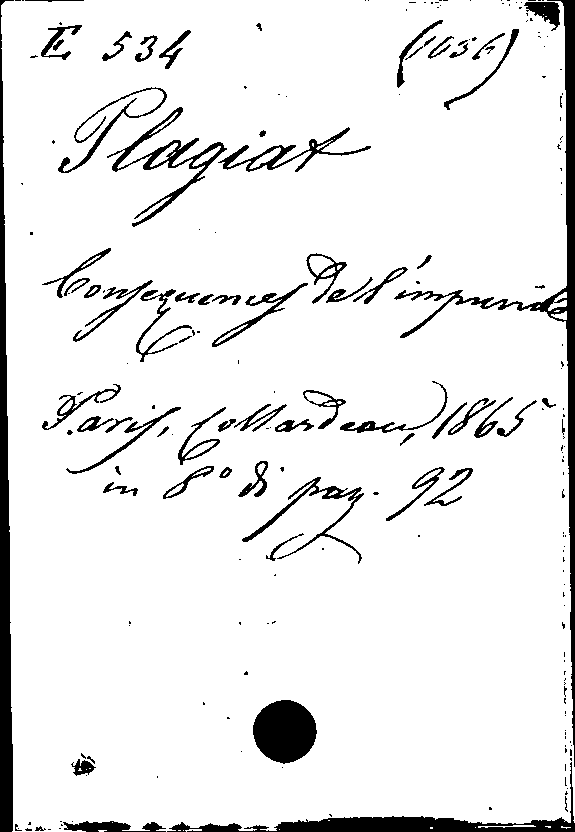 E 534 (1036)
Plagiat
Consequences de l'impunité
Paris, Collardeau, 1865
in 8° di pag. 92